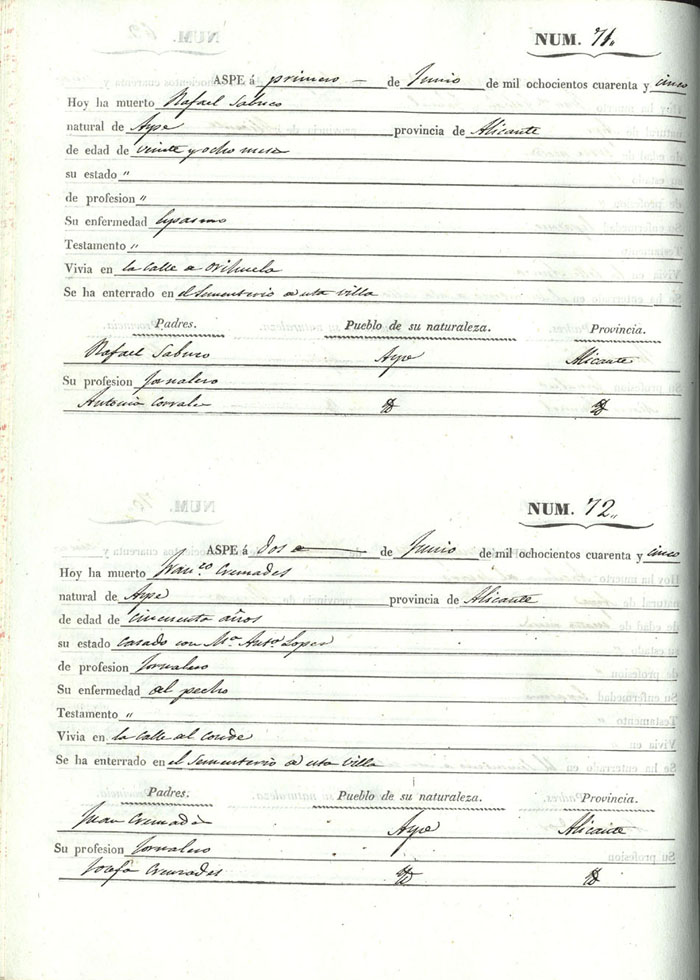 NUM. 71.
ASPE á primero de Junio de mil ochocientos cuarenta y cinco
Hoy ha muerto Rafael Sabuco
natural de Aspe provincia de Alicante
de edad de veinte y ocho meses
su estado "
de profesion "
Su enfermedad espasmo
Testamento "
Vivia en la calle de Orihuela
Se ha enterrado en el Sementerio de esta villa
Padres. Pueblo de su naturaleza. Provincia.
Rafael Sabuco Aspe Alicante
Su profesion Jornalero
Antonia
NUM. 72.
ASPE á dos de Junio de mil ochocientos cuarenta y cinco
Hoy ha muerto Franco. Cremades
natural de Aspe provincia de Alicante
de edad de cincuenta años
su estado casado con Ma. Anta. Lopez
de profesion Jornalero
Su enfermedad del pecho
Testamento "
Vivia en la calle del conde
Se ha enterrado en el Sementerio de esta villa
Padres. Pueblo de su naturaleza. Provincia.
Juan Cremades Aspe Alicante
Su profesion Jornalero
Josefa Cremades